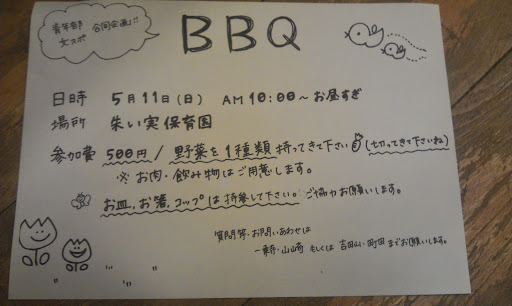 青年部
文スポ 合同企画!!
BBQ
日時 5月11日(日) AM 10:00～お昼すぎ
場所 朱い実保育園
参加費 500円 / 野菜を1種類持ってきて下さい (切ってきて下さいね)
※ お肉・飲み物はご用意します。
お皿、お箸、コップは持参して下さい。ご協力お願いします。
質問等・お問いあわせは
山崎 もしくは 吉田山・町田 までお願いします。